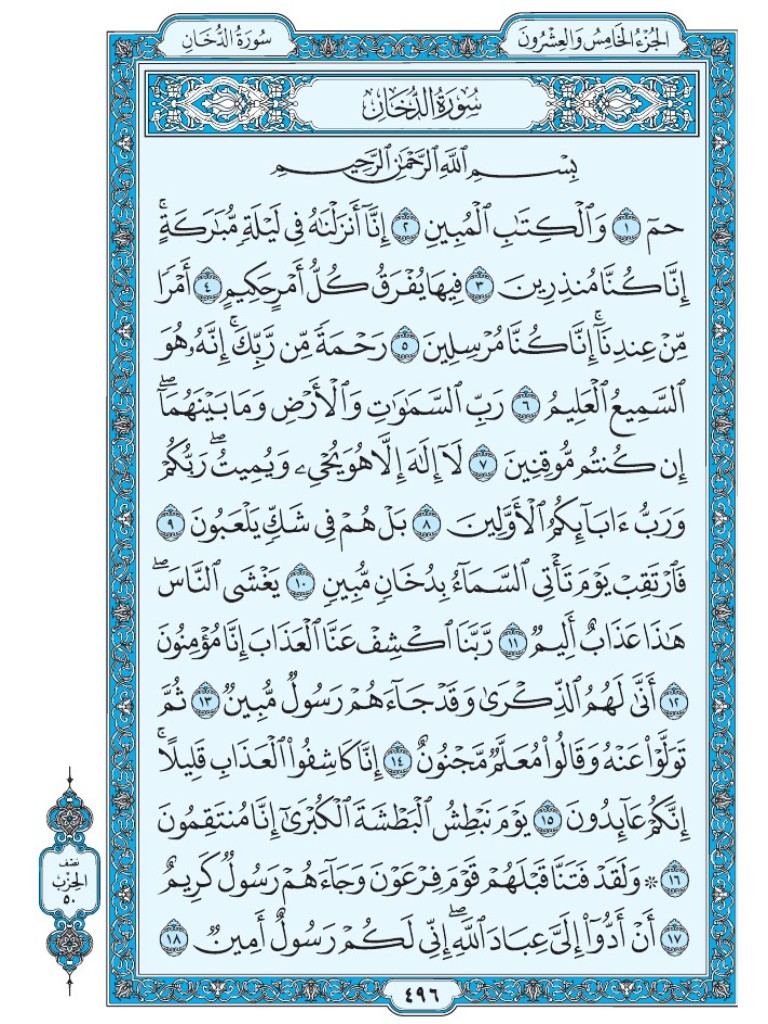 الجُزْءُ الخَامِسُ وَالعِشْرُونَ
سُورَةُ الدُّخَانِ
سُورَةُ الدُّخَانِ
بِسْمِ اللَّهِ الرَّحْمَٰنِ الرَّحِيمِ
حمٓ ١ وَٱلْكِتَٰبِ ٱلْمُبِينِ ٢ إِنَّآ أَنزَلْنَٰهُ فِى لَيْلَةٍ مُّبَٰرَكَةٍ ۚ
إِنَّا كُنَّا مُنذِرِينَ ٣ فِيهَا يُفْرَقُ كُلُّ أَمْرٍ حَكِيمٍ ٤ أَمْرًا
مِّنْ عِندِنَآ ۚ إِنَّا كُنَّا مُرْسِلِينَ ٥ رَحْمَةً مِّن رَّبِّكَ ۚ إِنَّهُۥ هُوَ
ٱلسَّمِيعُ ٱلْعَلِيمُ ٦ رَبِّ ٱلسَّمَٰوَٰتِ وَٱلْأَرْضِ وَمَا بَيْنَهُمَآ ۖ
إِن كُنتُم مُّوقِنِينَ ٧ لَآ إِلَٰهَ إِلَّا هُوَ يُحْىِۦ وَيُمِيتُ ۖ رَبُّكُمْ
وَرَبُّ ءَابَآئِكُمُ ٱلْأَوَّلِينَ ٨ بَلْ هُمْ فِى شَكٍّ يَلْعَبُونَ ٩
فَٱرْتَقِبْ يَوْمَ تَأْتِى ٱلسَّمَآءُ بِدُخَانٍ مُّبِينٍ ١٠ يَغْشَى ٱلنَّاسَ ۖ
هَٰذَا عَذَابٌ أَلِيمٌ ١١ رَّبَّنَا ٱكْشِفْ عَنَّا ٱلْعَذَابَ إِنَّا مُؤْمِنُونَ
١٢ أَنَّىٰ لَهُمُ ٱلذِّكْرَىٰ وَقَدْ جَآءَهُمْ رَسُولٌ مُّبِينٌ ١٣ ثُمَّ
تَوَلَّوْا۟ عَنْهُ وَقَالُوا۟ مُعَلَّمٌ مَّجْنُونٌ ١٤ إِنَّا كَاشِفُوا۟ ٱلْعَذَابِ قَلِيلًا ۚ
إِنَّكُمْ عَآئِدُونَ ١٥ يَوْمَ نَبْطِشُ ٱلْبَطْشَةَ ٱلْكُبْرَىٰٓ إِنَّا مُنتَقِمُونَ
١٦ ۞ وَلَقَدْ فَتَنَّا قَبْلَهُمْ قَوْمَ فِرْعَوْنَ وَجَآءَهُمْ رَسُولٌ كَرِيمٌ
١٧ أَنْ أَدُّوٓا۟ إِلَىَّ عِبَادَ ٱللَّهِ ۖ إِنِّى لَكُمْ رَسُولٌ أَمِينٌ ١٨
نصف
الحزب
٥٠
٤٩٦